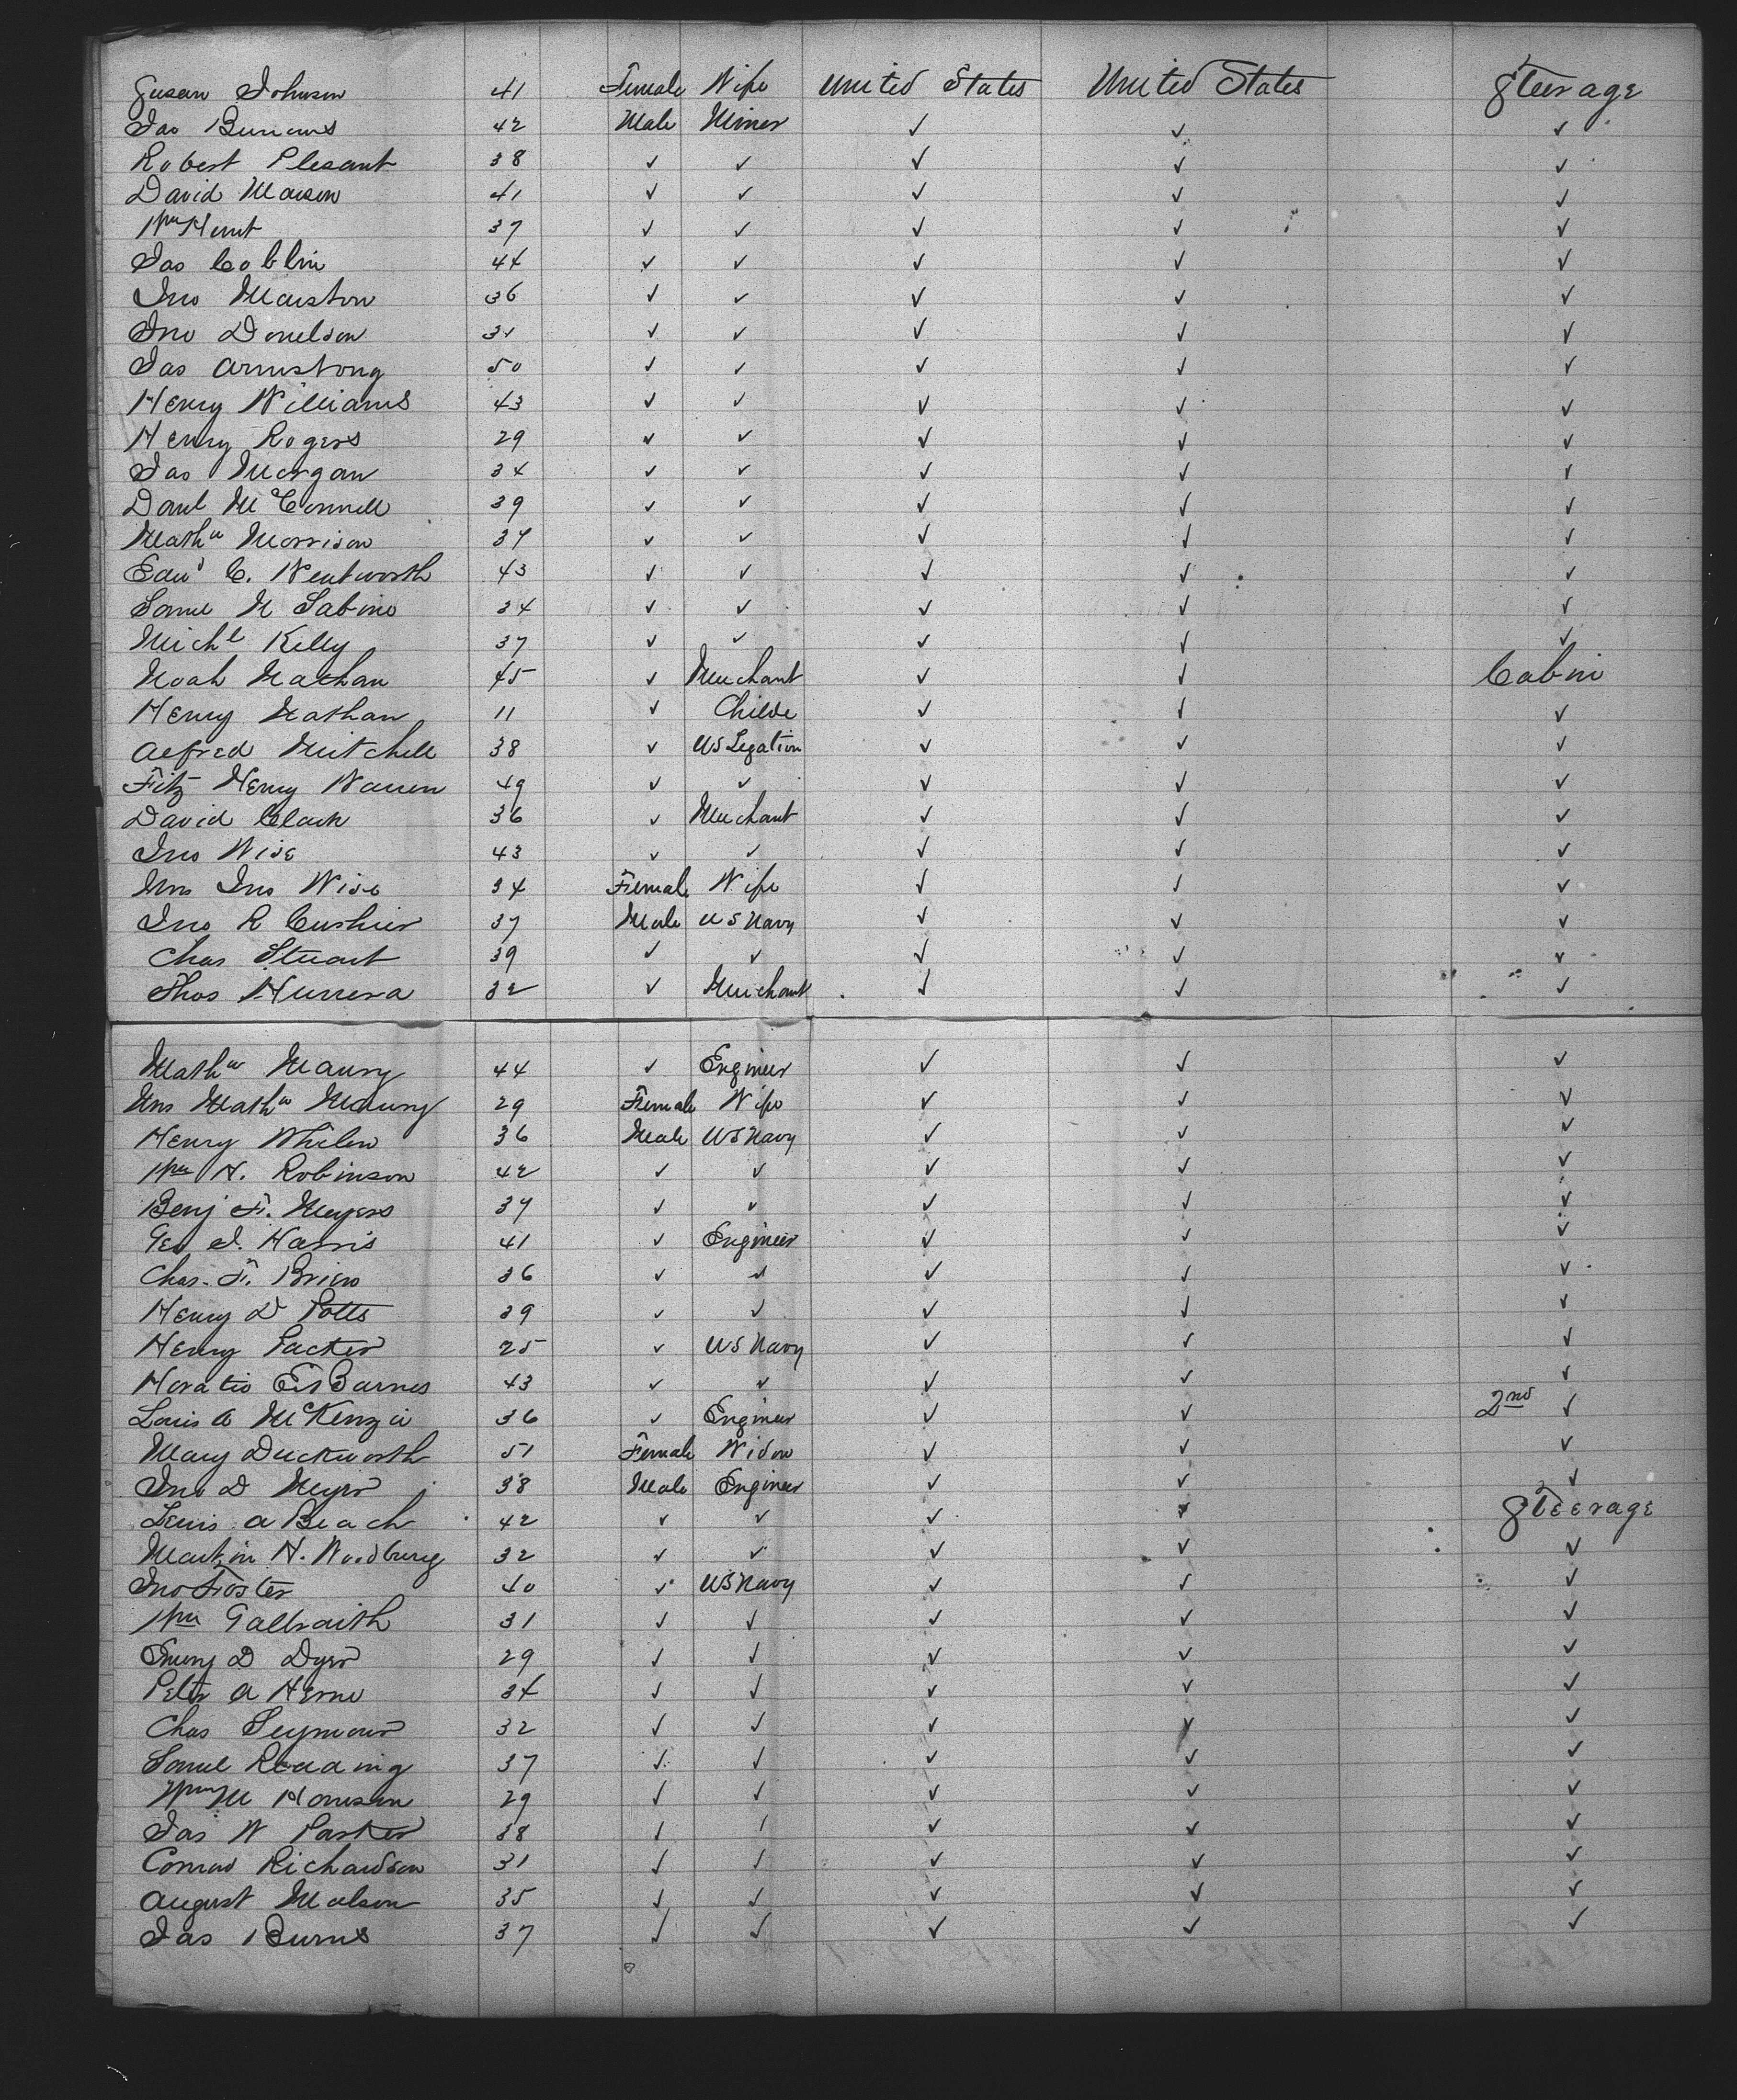 Susan Johnson 41 Female Wife United States United States Steerage
Jas Burrows 42 Male Miner ✓ ✓ ✓
Robert Plesant 38 ✓ ✓ ✓ ✓ ✓
David Mason 41 ✓ ✓ ✓ ✓ ✓
Wm Hunt 37 ✓ ✓ ✓ ✓ ✓
Jas Coblin 44 ✓ ✓ ✓ ✓ ✓
Jno Marston 36 ✓ ✓ ✓ ✓ ✓
Jno Donelson 31 ✓ ✓ ✓ ✓ ✓
Jas Armstrong 50 ✓ ✓ ✓ ✓ ✓
Henry Williams 43 ✓ ✓ ✓ ✓ ✓
Henry Rogers 29 ✓ ✓ ✓ ✓ ✓
Jas Morgan 34 ✓ ✓ ✓ ✓ ✓
Danl McConnell 39 ✓ ✓ ✓ ✓ ✓
Mathw Morrison 34 ✓ ✓ ✓ ✓ ✓
Edwd C. Wentworth 43 ✓ ✓ ✓ ✓ ✓
Saml N Sabine 34 ✓ ✓ ✓ ✓ ✓
Michl Kelly 37 ✓ ✓ ✓ ✓ ✓
Noah Nathan 45 ✓ Merchant ✓ ✓ Cabin
Henry Nathan 11 ✓ Childe ✓ ✓ ✓
Alfred Mitchell 38 ✓ US Legation ✓ ✓ ✓
Fitz Henry Warren 49 ✓ ✓ ✓ ✓ ✓
David Clark 36 ✓ Merchant ✓ ✓ ✓
Jno Wise 43 ✓ ✓ ✓ ✓ ✓
Mrs Jno Wise 34 Female Wife ✓ ✓ ✓
Jno R Cushier 37 Male US Navy ✓ ✓ ✓
Chas Stuart 39 ✓ ✓ ✓ ✓ ✓
Thos Herrera 32 ✓ Merchant ✓ ✓ ✓
Mathw Maury 44 ✓ Engineer ✓ ✓ ✓
Mrs Mathw Maury 29 Female Wife ✓ ✓ ✓
Henry Whilen 36 Male US Navy ✓ ✓ ✓
Wm H. Robinson 42 ✓ ✓ ✓ ✓ ✓
Benj F. Meyers 34 ✓ ✓ ✓ ✓ ✓
Geo J. Harris 41 ✓ Engineer ✓ ✓ ✓
Chas. F. Brien 36 ✓ ✓ ✓ ✓ ✓
Henry D Potts 39 ✓ ✓ ✓ ✓ ✓
Henry Packer 25 ✓ US Navy ✓ ✓ ✓
Horatio Barnes 43 ✓ ✓ ✓ ✓ ✓
Louis A McKenzie 36 ✓ Engineer ✓ ✓ 2nd ✓
Mary Duckworth 51 Female Widow ✓ ✓ ✓
Jno D Meyer 38 Male Engineer ✓ ✓ ✓
Lewis A Beach 42 ✓ ✓ ✓ ✓ Steerage
Martin H. Woodbury 32 ✓ ✓ ✓ ✓ ✓
Jno Foster 40 ✓ US Navy ✓ ✓ ✓
Wm Galbraith 31 ✓ ✓ ✓ ✓ ✓
Emery D Dyer 29 ✓ ✓ ✓ ✓ ✓
Peter A Herne 34 ✓ ✓ ✓ ✓ ✓
Chas Seymour 32 ✓ ✓ ✓ ✓ ✓
Saml Reading 37 ✓ ✓ ✓ ✓ ✓
Wm M Harrison 29 ✓ ✓ ✓ ✓ ✓
Jas W Parker 38 ✓ ✓ ✓ ✓ ✓
Conrad Richardson 31 ✓ ✓ ✓ ✓ ✓
August Malson 35 ✓ ✓ ✓ ✓ ✓
Jas Burns 37 ✓ ✓ ✓ ✓ ✓